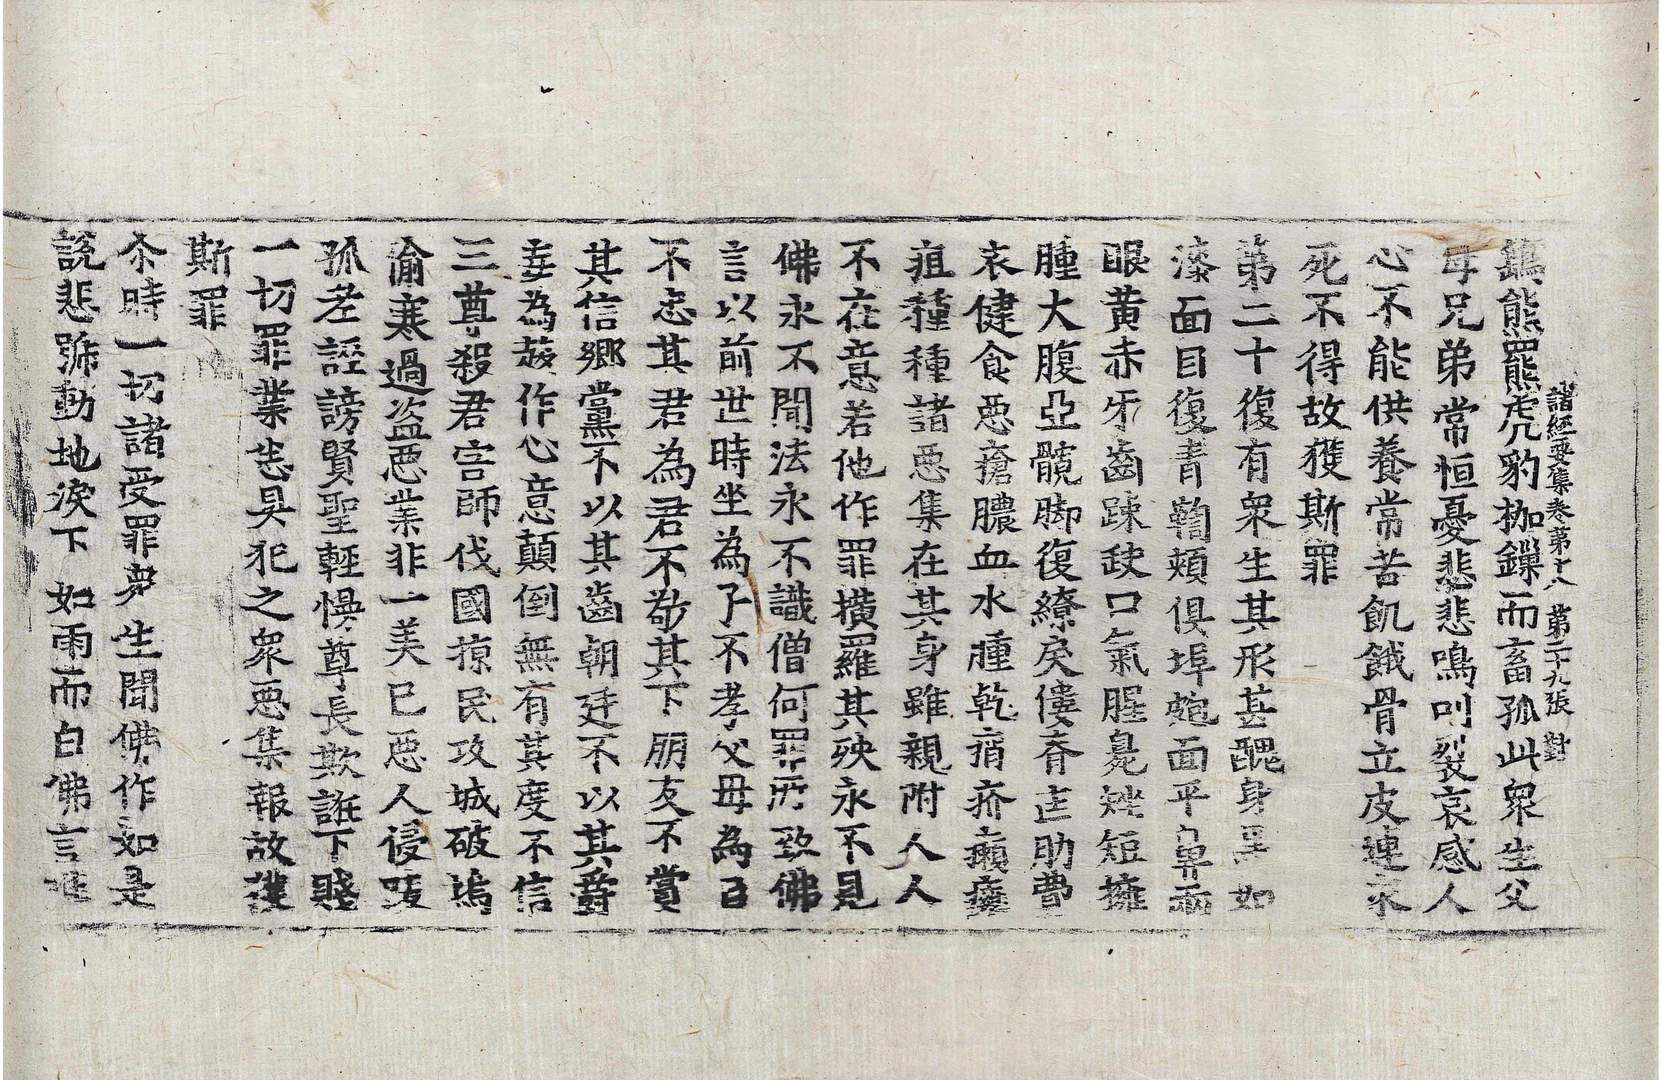 諸經要集卷第十八 第二十九張 對
鵝熊羆虎豹枷鏁而畜孤此衆生父
母兄弟常恒憂悲悲鳴叫裂哀感人
心不能供養常苦飢餓骨立皮連求
死不得故獲斯罪
第二十復有衆生其形甚醜身黑如
漆面目復青𩑔頰俱埠皰面平鼻兩
眼黃赤牙齒踈缺口氣腥臭矬短擁
腫大腹亞髖脚復繚戾僂脊匡肋費
衣健食惡瘡膿血水腫乾痟疥癩癰
疽種種諸惡集在其身雖親附人人
不在意若他作罪撗羅其殃永不見
佛永不聞法永不識僧何罪所致佛
言以前世時坐為子不孝父母為臣
不忠其君為君不敬其下朋友不賞
其信鄉黨不以其齒朝廷不以其爵
妄為趍作心意顛倒無有其度不信
三尊殺君害師伐國掠民攻城破塢
偷寨過盜惡業非一美已惡人侵陵
孤老誣謗賢聖輕慢尊長欺誑下賤
一切罪業悉具犯之衆惡集報故獲
斯罪
尒時一切諸受罪衆生聞佛作如是
說悲號動地淚下如雨而白佛言唯